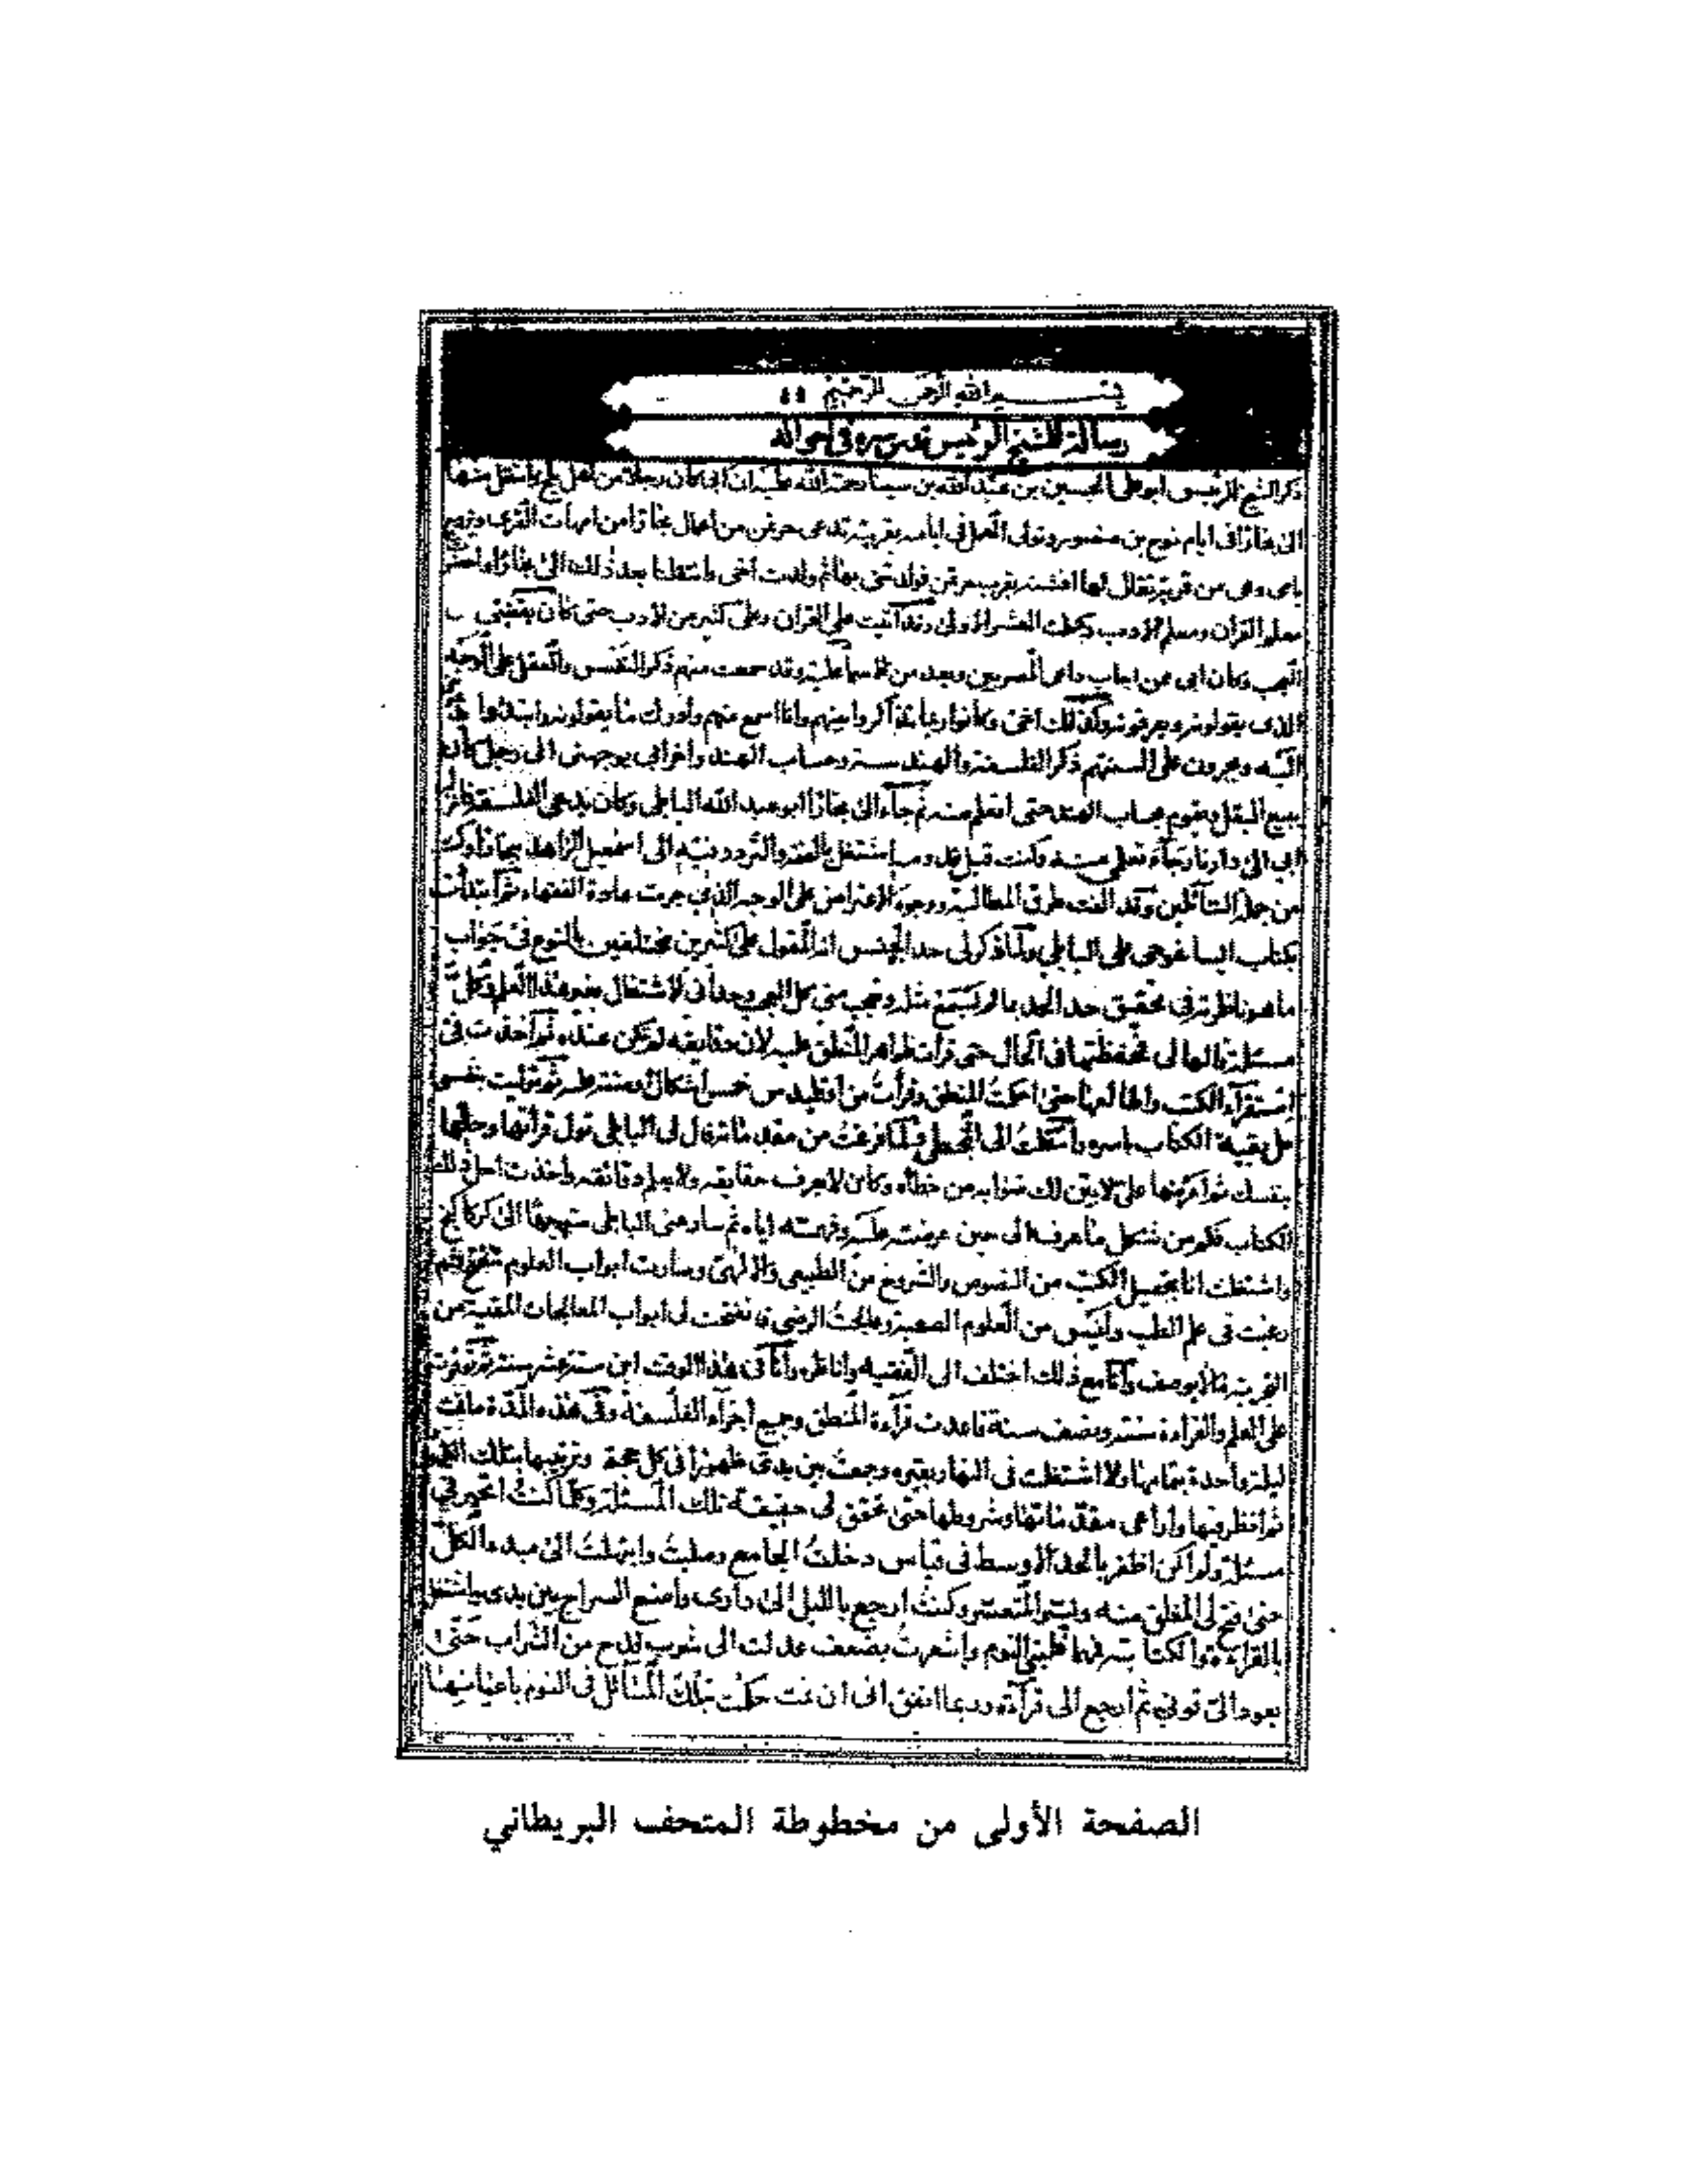 بسم الله الرحمن الرحيم
رسالة الشيخ الرئيس قدس سره في احواله
ذكر الشيخ الرئيس ابو علي الحسين بن عبد الله بن سينا رحمة الله عليه ان ابي كان رجلا من اهل بلخ وانتقل منها
الى بخارا في ايام نوح بن منصور وتولى العمل في ايامه بقرية تدعى من اعمال بخارا من امهات القرى وتزوج
بامي وهي من قرية يقال لها افشنه بقرب ولدت اخي وانتقلنا بعد ذلك الى بخارا واحضر
معلم القرآن ومعلم الادب وكملت العشر الاولى وقد اتيت على القرآن وعلى كثير من الادب حتى كان يقضى
العجب وكان ابي ممن اجاب داعي المصريين ويعد من وقد سمعت منهم ذكر النفس والعقل على الوجه
الذي يقولونه ويعرفونه وكذلك اخي وكانوا ربما تذاكروا بينهم وانا اسمع منهم وادرك ما يقولونه وابتدأوا
اليه ويجرون على السنتهم ذكر الفلسفة والهندسة وحساب الهند واخذ ابي يوجهني الى رجل كان
يبيع البقل ويقوم بحساب الهند حتى اتعلم منه ثم جاء الى بخارا ابو عبد الله الباطلي وكان يدعى الفلسفة
ابي الى دارنا رجاء تعلمي منه وكنت قبل قدومه اشتغل بالفقه والتردد فيه الى اسمعيل الزاهد بخارا وكنت
من السائلين وقد الفت طرق المطالبة ووجوه الاعتراض على الوجه الذي جرت عادة الفقهاء ثم ابتدأت
بكتاب ايساغوجي على الباطلي ولما ذكر لي حد الجنس انه المقول على كثيرين مختلفين بالنوع في جواب
ما هو في تحقيق حد الحد بما لم يسمع مثله وتعجب مني كل العجب لاشتغال بغير هذا العلم وكل
مسئلة قالها لي في الحال حتى قرأت ظواهر المنطق عليه لان دقايقه لم يكن عنده ثم اخذت في
استقرآء الكتب حتى احكمت المنطق وقرأت من اقليدس خمسة اشكال او ستة عليه ثم توليت بنفسي
حل بقية الكتاب باسره وانتقلت الى المجسطي ولما فرغت من مقدماته قال لي الباطلي تول قرأتها وحلها
بنفسك ثم اعرضها علي لابين لك صوابه من خطأه وكان لا يعرف حقايقه ولا يعلم دقائقه واخذت احل ذلك
الكتاب فكم من شكل ما عرفه الى حين عرضته عليه وفهمته اياه ثم فارقني الباطلي متوجها الى كركانج
واشتغلت انا بتحصيل الكتب من النصوص والشروح من الطبيعي والالهي وصارت ابواب العلوم ثم
رغبت في علم الطب وليس من العلوم الصعبة وعالجت المرضى فانفتحت لي ابواب المعالجات المقتبسة من
التجربة ما لا يوصف وانا مع ذلك اختلف الى الفقه وانا في هذا الوقت ابن ستة عشر سنة ثم توفرت
على العلم والقراءة سنة ونصف سنة فاعدت قرآءة المنطق وجميع اجزآء الفلسفة وفي هذه المدة ما نمت
ليلة واحدة بتمامها ولا اشتغلت في النهار بغيره وجمعت بين يدي ظهورا في كل حجة
ثم انظر فيها واراعي مقدماتها وشروطها حتى تحقق لي حقيقة تلك المسئلة وكلما كنت اتحير في
مسئلة ولم اكن اظفر بالحد الاوسط في قياس دخلت الجامع وصليت وابتهلت الى مبدء الكل
حتى فتح لي المغلق منه ويسر المتعسر وكنت ارجع بالليل الى داري واضع السراج بين يدي
بالقراءة والكتابة النوم واشعرت بضعف عدلت الى شرب قدح من الشراب حتى
يعود الي قوتي ثم ارجع الى قرآءة وربما اتفق اني ان نمت تلك المسائل في النوم باعيانها
الصفحة الأولى من مخطوطة المتحف البريطاني